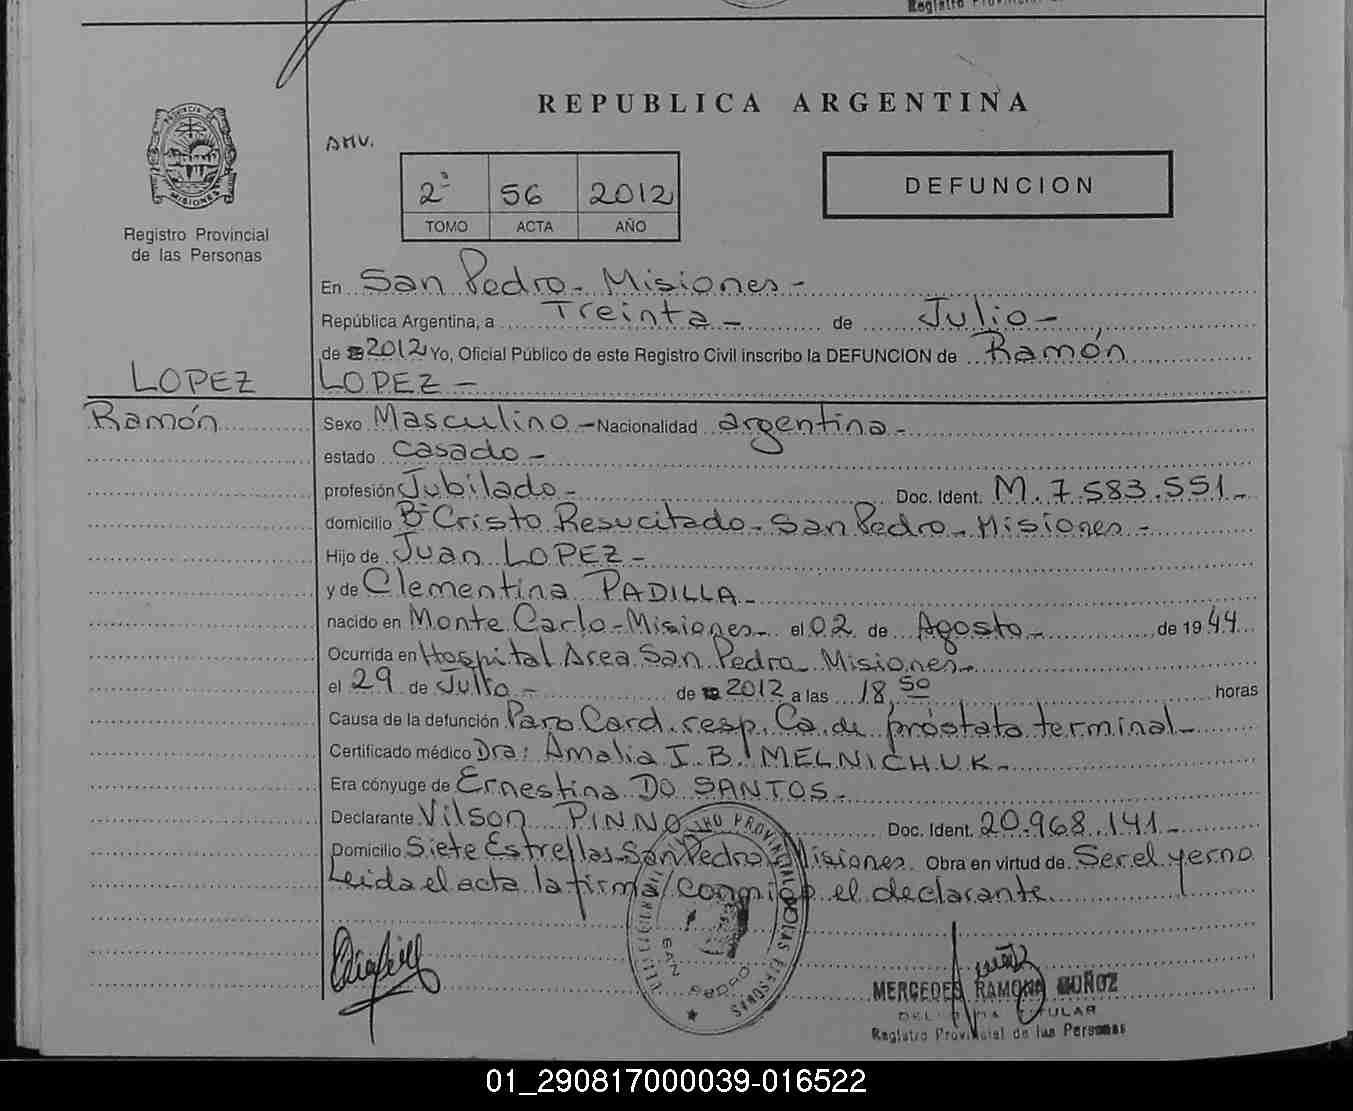 REPUBLICA ARGENTINA
AMV.
2ª 56 2012
TOMO ACTA AÑO
DEFUNCION
PROVINCIA DE MISIONES
Registro Provincial
de las Personas
En San Pedro - Misiones -
República Argentina, a Treinta - de Julio -,
de 2012 Yo, Oficial Público de este Registro Civil inscribo la DEFUNCION de Ramón
LOPEZ LOPEZ -
Ramón Sexo Masculino - Nacionalidad argentina -
estado Casado -
profesión Jubilado - Doc. Ident. M. 7.583.551 -
domicilio Bº Cristo Resucitado - San Pedro - Misiones -
Hijo de Juan LOPEZ -
y de Clementina PADILLA -
nacido en Monte Carlo - Misiones - el 02 de Agosto - de 1944
Ocurrida en Hospital Area San Pedro Misiones -
el 29 de Julio - de 2012 a las 18,50 horas
Causa de la defunción Paro Card. resp. Ca. de próstata terminal -
Certificado médico Dra: Amalia I. B. MELNICHUK -
Era cónyuge de Ernestina DO SANTOS -
Declarante Vilson PINNO Doc. Ident. 20.968.141 -
Domicilio Siete Estrellas - San Pedro Misiones. Obra en virtud de Ser el yerno
Leida el acta la firma conmigo el declarante.
SAN PEDRO
MERCEDES RAMONA MUÑOZ
DELEGADA TITULAR
Registro Provincial de las Personas
01_290817000039-016522